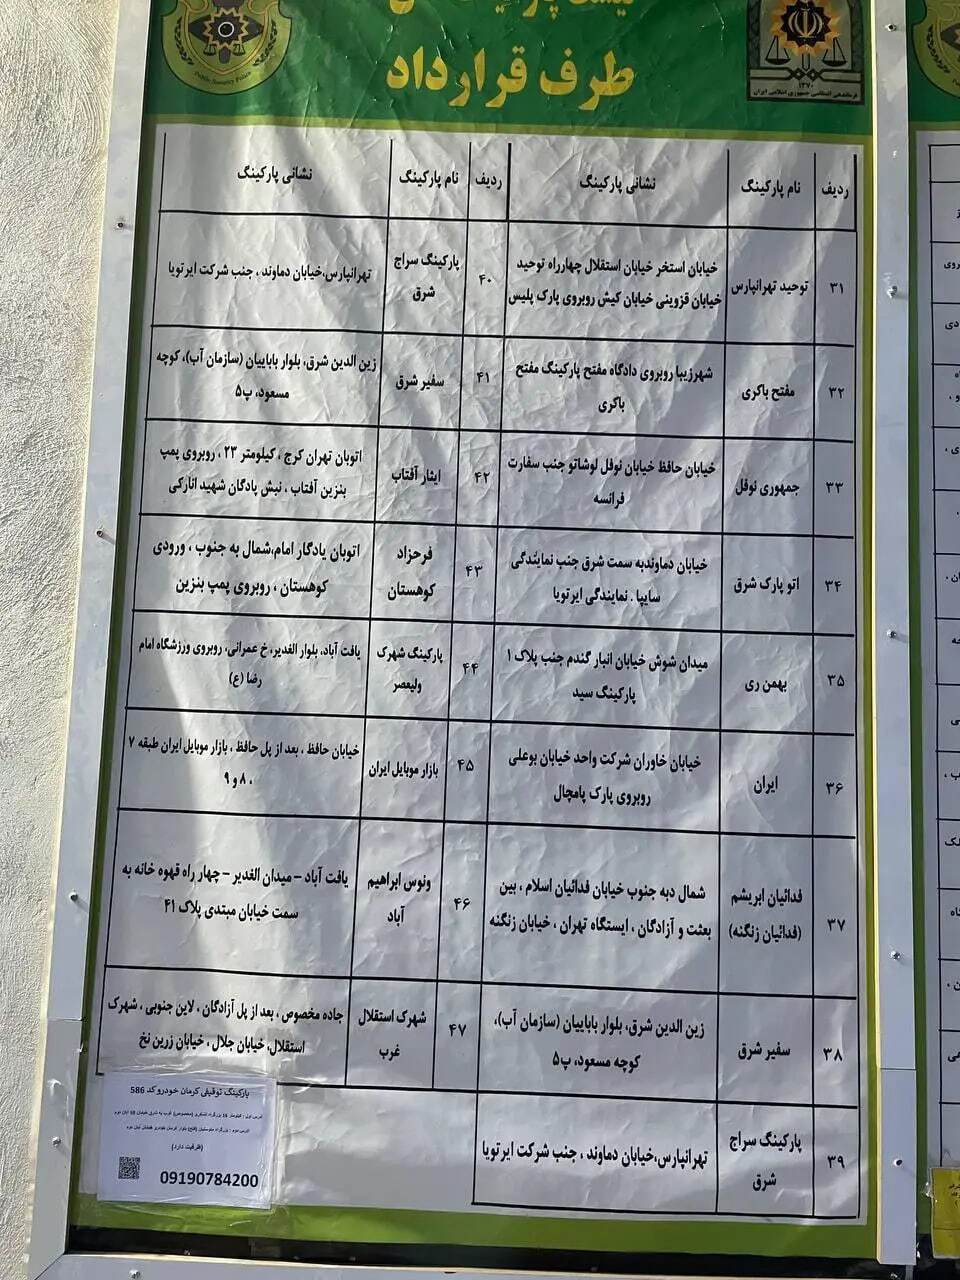 طرف قرارداد
Public Security Police
۱۳۷۰
فرماندهی انتظامی جمهوری اسلامی ایران
ردیف نام پارکینگ نشانی پارکینگ
۳۱ توحید تهرانپارس خیابان استخر خیابان استقلال چهارراه توحید
خیابان قزوینی خیابان کیش روبروی پارک پلیس
۳۲ مفتح باکری شهرزیبا روبروی دادگاه مفتح پارکینگ مفتح
باکری
۳۳ جمهوری نوفل خیابان حافظ خیابان نوفل لوشاتو جنب سفارت
فرانسه
۳۴ اتو پارک شرق خیابان دماوندبه سمت شرق جنب نمایندگی
سایپا . نمایندگی ایرتویا
۳۵ بهمن ری میدان شوش خیابان انبار گندم جنب پلاک ۱
پارکینگ سید
۳۶ ایران خیابان خاوران شرکت واحد خیابان بوعلی
روبروی پارک پامچال
۳۷ فدائیان ابریشم
(فدائیان زنگنه) شمال دبه جنوب خیابان فدائیان اسلام ، بین
بعثت و آزادگان ، ایستگاه تهران ، خیابان زنگنه
۳۸ سفیر شرق زین الدین شرق، بلوار باباییان (سازمان آب)،
کوچه مسعود، پ۵
۳۹ پارکینگ سراج
شرق تهرانپارس،خیابان دماوند ، جنب شرکت ایرتویا
ردیف نام پارکینگ نشانی پارکینگ
۴۰ پارکینگ سراج
شرق تهرانپارس،خیابان دماوند ، جنب شرکت ایرتویا
۴۱ سفیر شرق زین الدین شرق، بلوار باباییان (سازمان آب)، کوچه
مسعود، پ۵
۴۲ ایثار آفتاب اتوبان تهران کرج ، کیلومتر ۲۳ ، روبروی پمپ
بنزین آفتاب ، نبش پادگان شهید انارکی
۴۳ فرحزاد
کوهستان اتوبان یادگار امام،شمال به جنوب ، ورودی
کوهستان ، روبروی پمپ بنزین
۴۴ پارکینگ شهرک
ولیعصر یافت آباد، بلوار الغدیر، خ عمرانی، روبروی ورزشگاه امام
رضا (ع)
۴۵ بازار موبایل ایران خیابان حافظ ، بعد از پل حافظ ، بازار موبایل ایران طبقه ۷
، ۸ و ۹
۴۶ ونوس ابراهیم
آباد یافت آباد – میدان الغدیر – چهار راه قهوه خانه به
سمت خیابان مبتدی پلاک ۴۱
۴۷ شهرک استقلال
غرب جاده مخصوص ، بعد از پل آزادگان ، لاین جنوبی ، شهرک
استقلال، خیابان جلال ، خیابان زرین نخ
پارکینگ توقیفی کرمان خودرو کد 586
(ظرفیت دارد)
09190784200